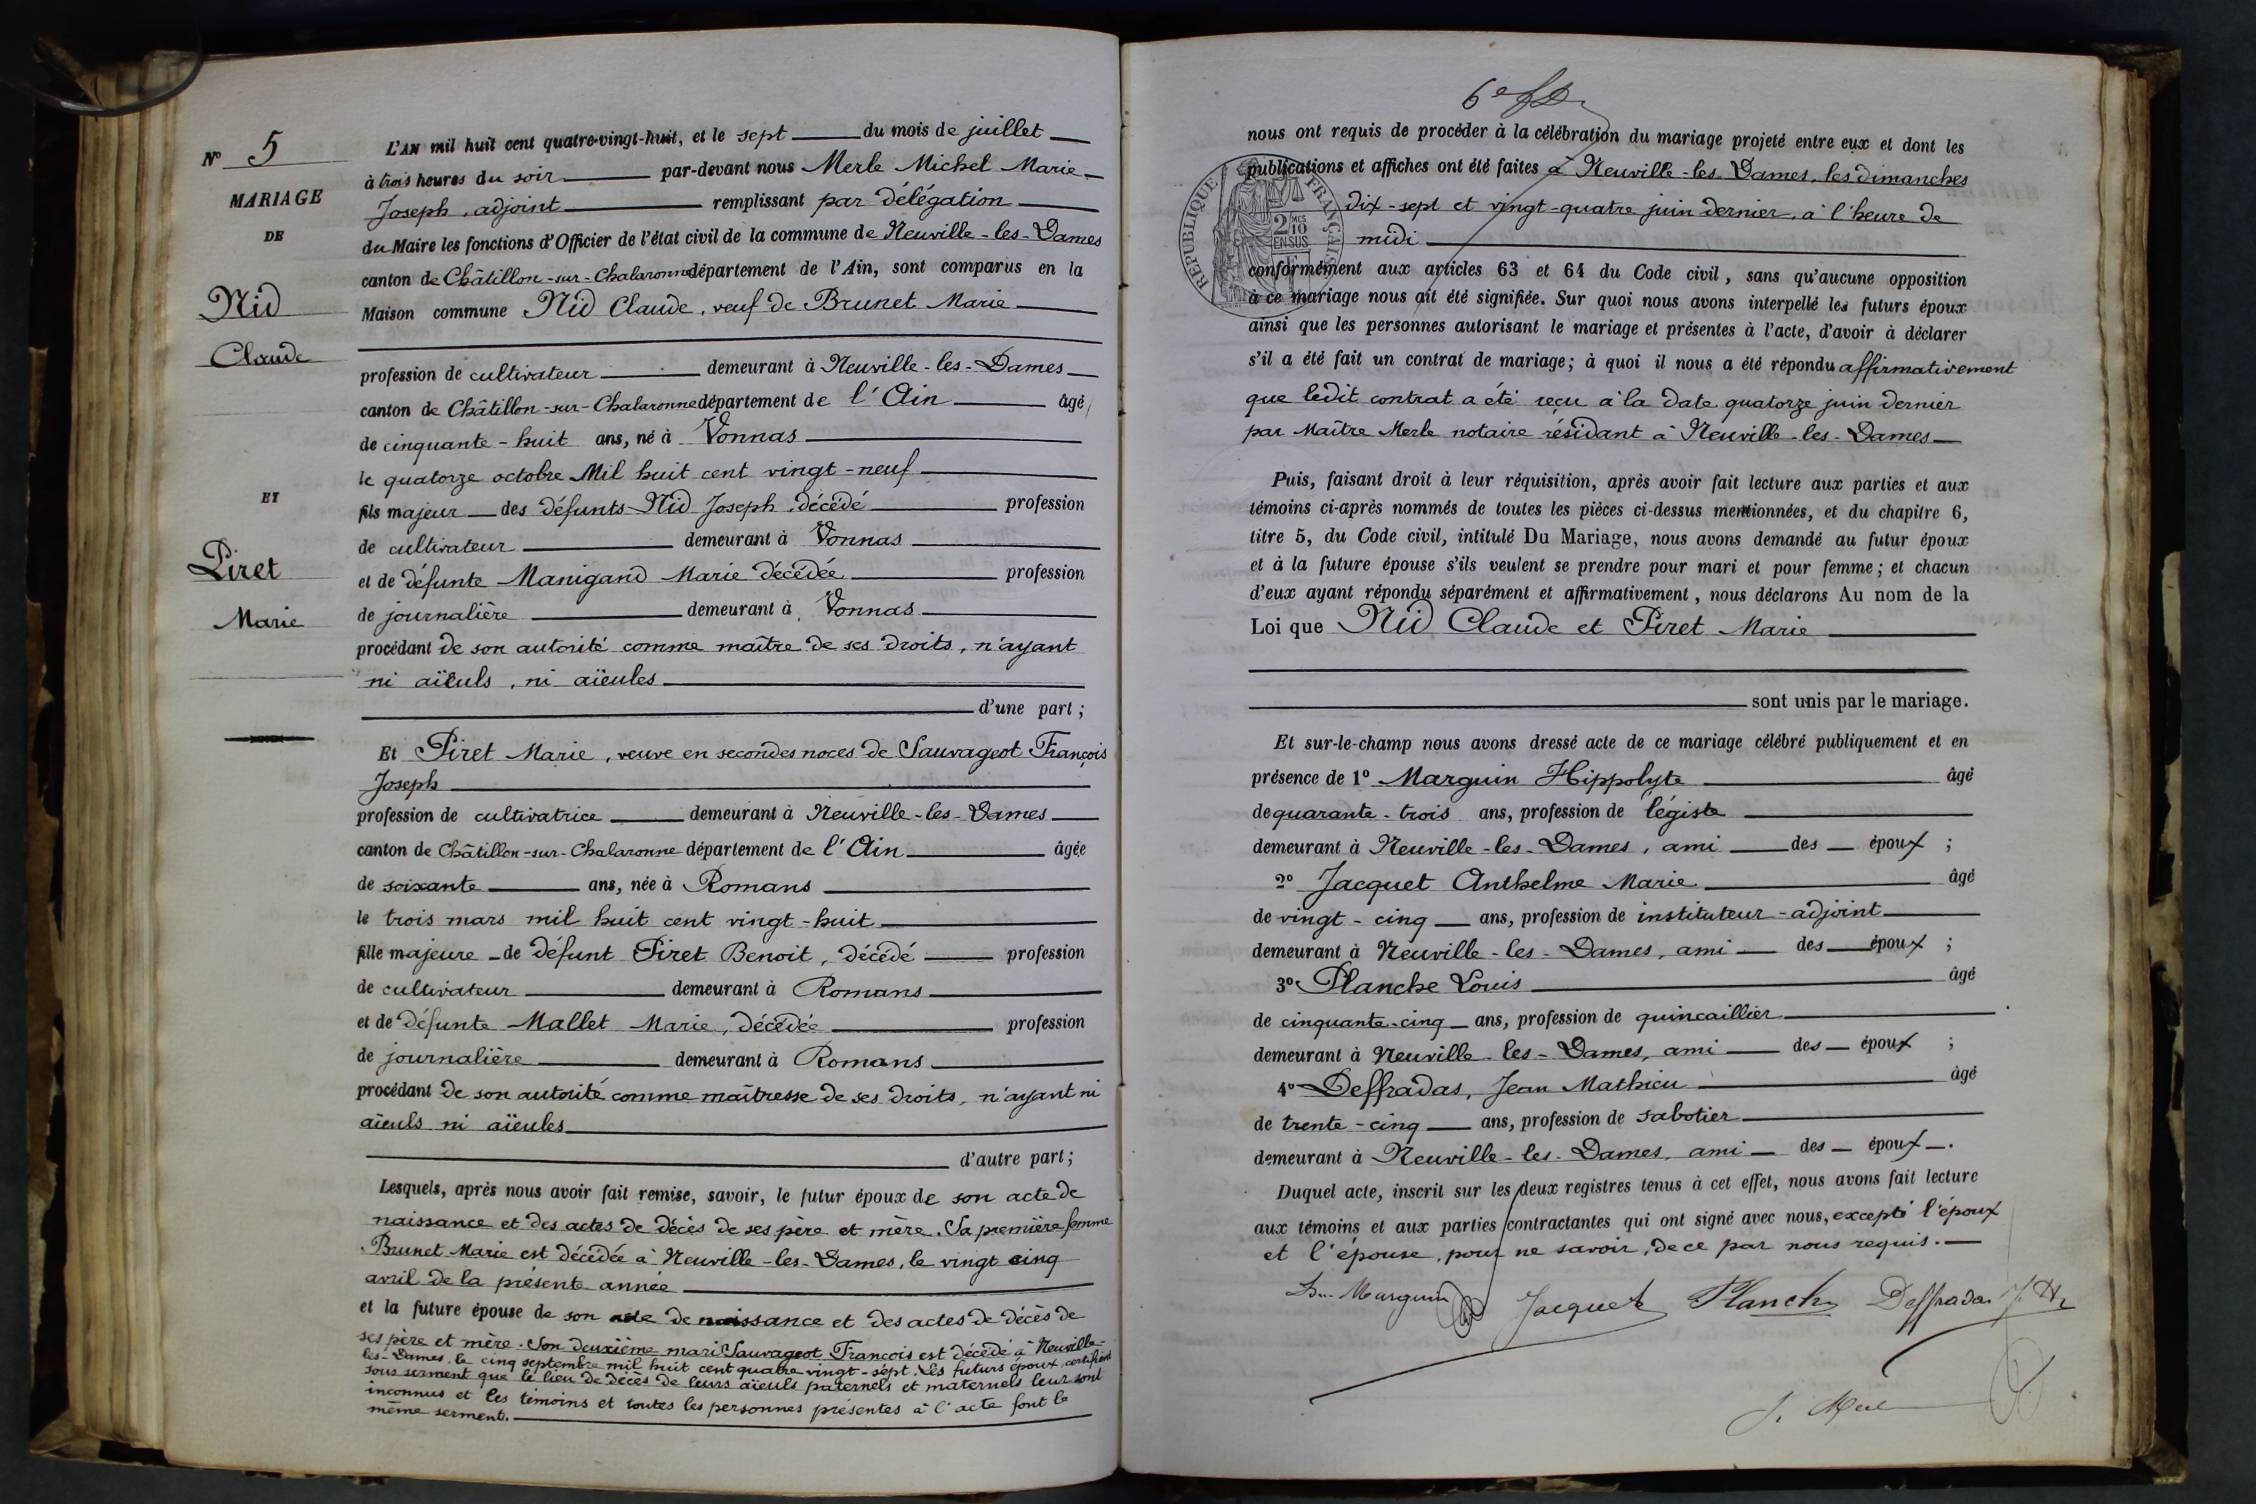 N° 5
MARIAGE
DE
Nid
Claude
ET
Piret
Marie
L'AN mil huit cent quatre-vingt-huit, et le sept du mois de juillet
à trois heures du soir par-devant nous Merle Michel Marie
Joseph, adjoint remplissant par délégation
du Maire les fonctions d'Officier de l'état civil de la commune de Neuville-les-Dames
canton de Châtillon-sur-Chalaronne département de l'Ain, sont comparus en la
Maison commune Nid Claude, veuf de Brunet Marie
profession de cultivateur demeurant à Neuville-les-Dames
canton de Châtillon-sur-Chalaronne département de l'Ain âgé
de cinquante-huit ans, né à Vonnas
le quatorze octobre Mil huit cent vingt-neuf
fils majeur des défunts Nid Joseph, décédé profession
de cultivateur demeurant à Vonnas
et de défunte Manigand Marie décédée profession
de journalière demeurant à Vonnas
procédant de son autorité comme maître de ses droits, n'ayant
ni aïeuls, ni aïeules
d'une part ;
Et Piret Marie, veuve en secondes noces de Sauvageot François
Joseph
profession de cultivatrice demeurant à Neuville-les-Dames
canton de Châtillon-sur-Chalaronne département de l'Ain âgée
de soixante ans, née à Romans
le trois mars mil huit cent vingt-huit
fille majeure de défunt Piret Benoit, décédé profession
de cultivateur demeurant à Romans
et de défunte Mallet Marie, décédée profession
de journalière demeurant à Romans
procédant de son autorité comme maîtresse de ses droits, n'ayant ni
aïeuls ni aïeules
d'autre part ;
Lesquels, après nous avoir fait remise, savoir, le futur époux de son acte de
naissance et des actes de décès de ses père et mère. Sa première femme
Brunet Marie est décédée à Neuville-les-Dames, le vingt cinq
avril de la présente année
et la future épouse de son acte de naissance et des actes de décès de
ses père et mère. Son deuxième mari Sauvageot François est décédé à Neuville-
les-Dames, le cinq septembre mil huit cent quatre vingt-sept. Les futurs époux certifient
sous serment que le lieu de décès de leurs aïeuls paternels et maternels leur sont
inconnus et les témoins et toutes les personnes présentes à l'acte font le
même serment.
6e
nous ont requis de procéder à la célébration du mariage projeté entre eux et dont les
publications et affiches ont été faites à Neuville-les-Dames, les dimanches
dix-sept et vingt-quatre juin dernier, à l'heure de
midi
RÉPUBLIQUE FRANÇAISE
2 MES
10
EN SUS
conformément aux articles 63 et 64 du Code civil, sans qu'aucune opposition
à ce mariage nous ait été signifiée. Sur quoi nous avons interpellé les futurs époux
ainsi que les personnes autorisant le mariage et présentes à l'acte, d'avoir à déclarer
s'il a été fait un contrat de mariage; à quoi il nous a été répondu affirmativement
que ledit contrat a été reçu à la date quatorze juin dernier
par Maître Merle notaire résidant à Neuville-les-Dames
Puis, faisant droit à leur réquisition, après avoir fait lecture aux parties et aux
témoins ci-après nommés de toutes les pièces ci-dessus mentionnées, et du chapitre 6,
titre 5, du Code civil, intitulé Du Mariage, nous avons demandé au futur époux
et à la future épouse s'ils veulent se prendre pour mari et pour femme ; et chacun
d'eux ayant répondu séparément et affirmativement, nous déclarons Au nom de la
Loi que Nid Claude et Piret Marie
sont unis par le mariage.
Et sur-le-champ nous avons dressé acte de ce mariage célébré publiquement et en
présence de 1° Marguin Hippolyte âgé
de quarante-trois ans, profession de légiste
demeurant à Neuville-les-Dames, ami des époux ;
2° Jacquet Anthelme Marie âgé
de vingt-cinq ans, profession de instituteur-adjoint
demeurant à Neuville-les-Dames, ami des époux ;
3° Planche Louis âgé
de cinquante-cinq ans, profession de quincaillier
demeurant à Neuville-les-Dames, ami des époux ;
4° Deffradas, Jean Mathieu âgé
de trente-cinq ans, profession de sabotier
demeurant à Neuville-les-Dames, ami des époux.
Duquel acte, inscrit sur les deux registres tenus à cet effet, nous avons fait lecture
aux témoins et aux parties contractantes qui ont signé avec nous, excepté l'époux
et l'épouse, pour ne savoir, de ce par nous requis.
Marguin Jacquet Planche Deffradas J. M.
J. Merle